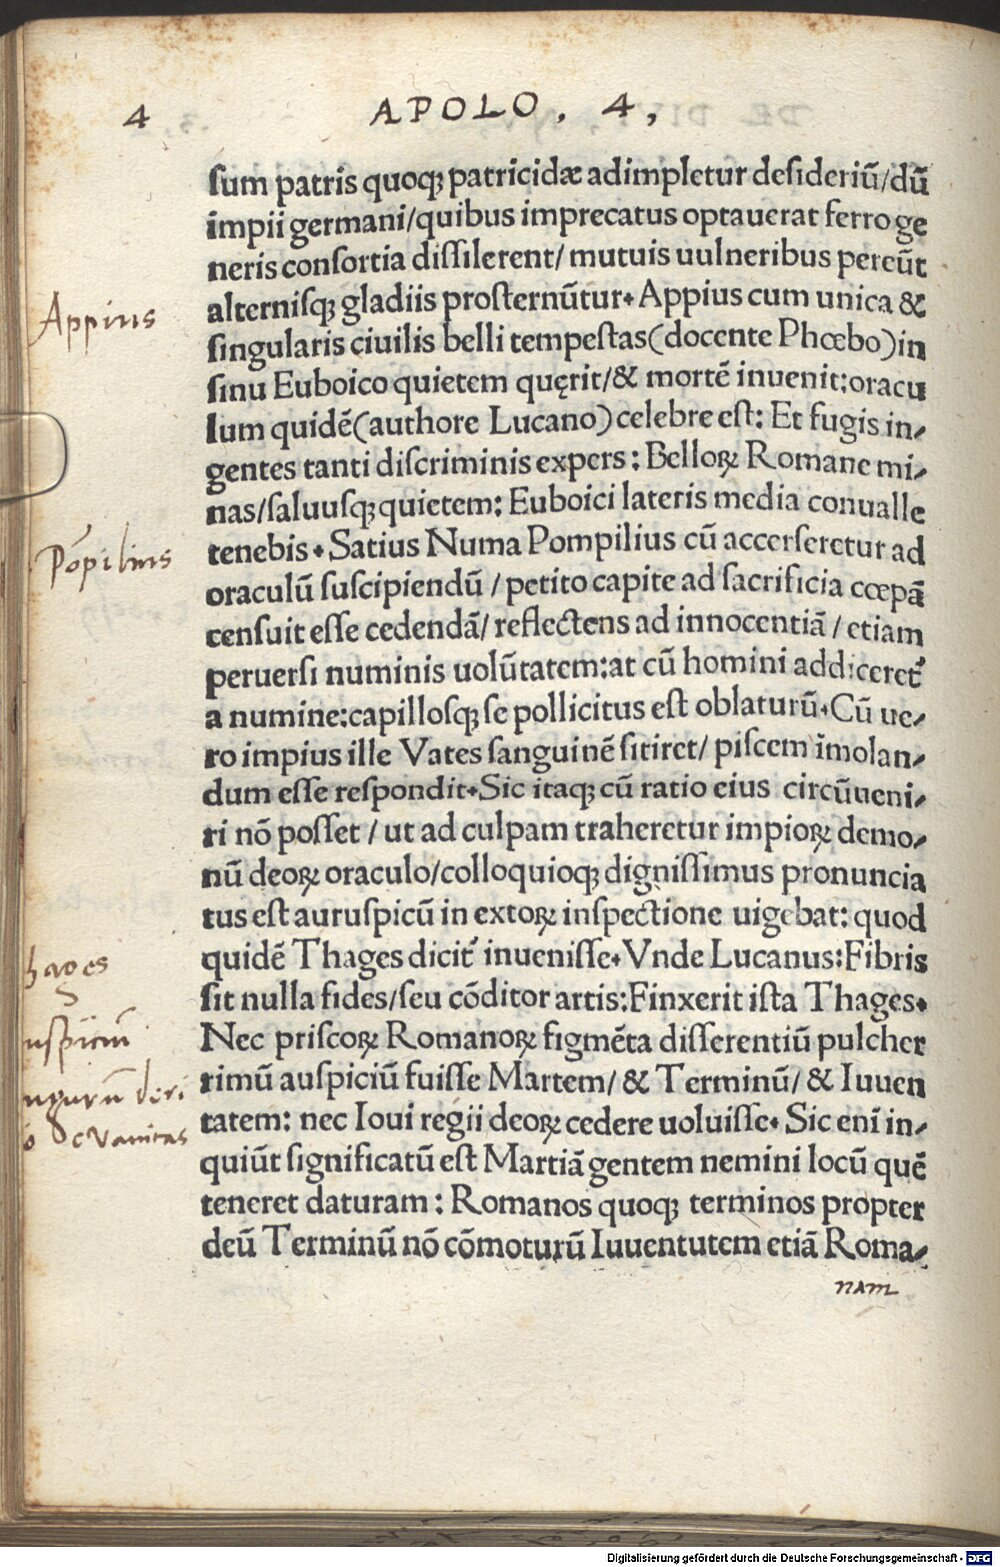 4 APOLO, 4,
ſum patris quoqꝫ patricidæ adimpletur deſideriū/dū
impii germani/quibus imprecatus optauerat ferro ge
neris conſortia diſſilerent/ mutuis uulneribus pereūt
alterniſqꝫ gladiis proſternūtur. Appius cum unica &
Appius
ſingularis ciuilis belli tempeſtas(docente Phœbo)in
ſinu Euboico quietem quęrit/& mortē inuenit:oracu
lum quidē(authore Lucano)celebre eſt: Et fugis in-
gentes tanti diſcriminis expers: Belloꝝ Romane mi-
nas/ſaluuſqꝫ quietem: Euboici lateris media conualle
tenebis. Satius Numa Pompilius cū accerſeretur ad
Pōpilius
oraculū ſuſcipiendū / petito capite ad ſacrificia cœpā
cenſuit eſſe cedendā/ reflectens ad innocentiā / etiam
peruerſi numinis uolūtatem:at cū homini addiceret᷒
a numine:capilloſqꝫ ſe pollicitus eſt oblaturū.Cū ue-
ro impius ille Vates ſanguinē ſitiret/ piſcem īmolan-
dum eſſe reſpondit.Sic itaqꝫ cū ratio eius circūueni-
ri nō poſſet / ut ad culpam traheretur impioꝝ demo-
nū deoꝝ oraculo/colloquioqꝫ digniſſimus pronuncia
tus eſt auruſpicū in extoꝝ inſpectione uigebat: quod
quidē Thages dicit᷒ inueniſſe.Vnde Lucanus:Fibris
hages
ſit nulla fides/ſeu cōditor artis:Finxerit iſta Thages.
Nec priſcoꝝ Romanoꝝ figmēta diſſerentiū pulcher
uſpiciū
rimū auſpiciū fuiſſe Martem/ & Terminū/ & Iuuen
ugurū deri
tatem: nec Ioui regii deoꝝ cedere uoluiſſe. Sic enī in-
o &c vanitas
quiūt ſignificatū eſt Martiā gentem nemini locū quē
teneret daturam: Romanos quoqꝫ terminos propter
deū Terminū nō cōmoturū Iuuentutem etiā Roma-
nam
Digitalisierung gefördert durch die Deutsche Forschungsgemeinschaft - DFG